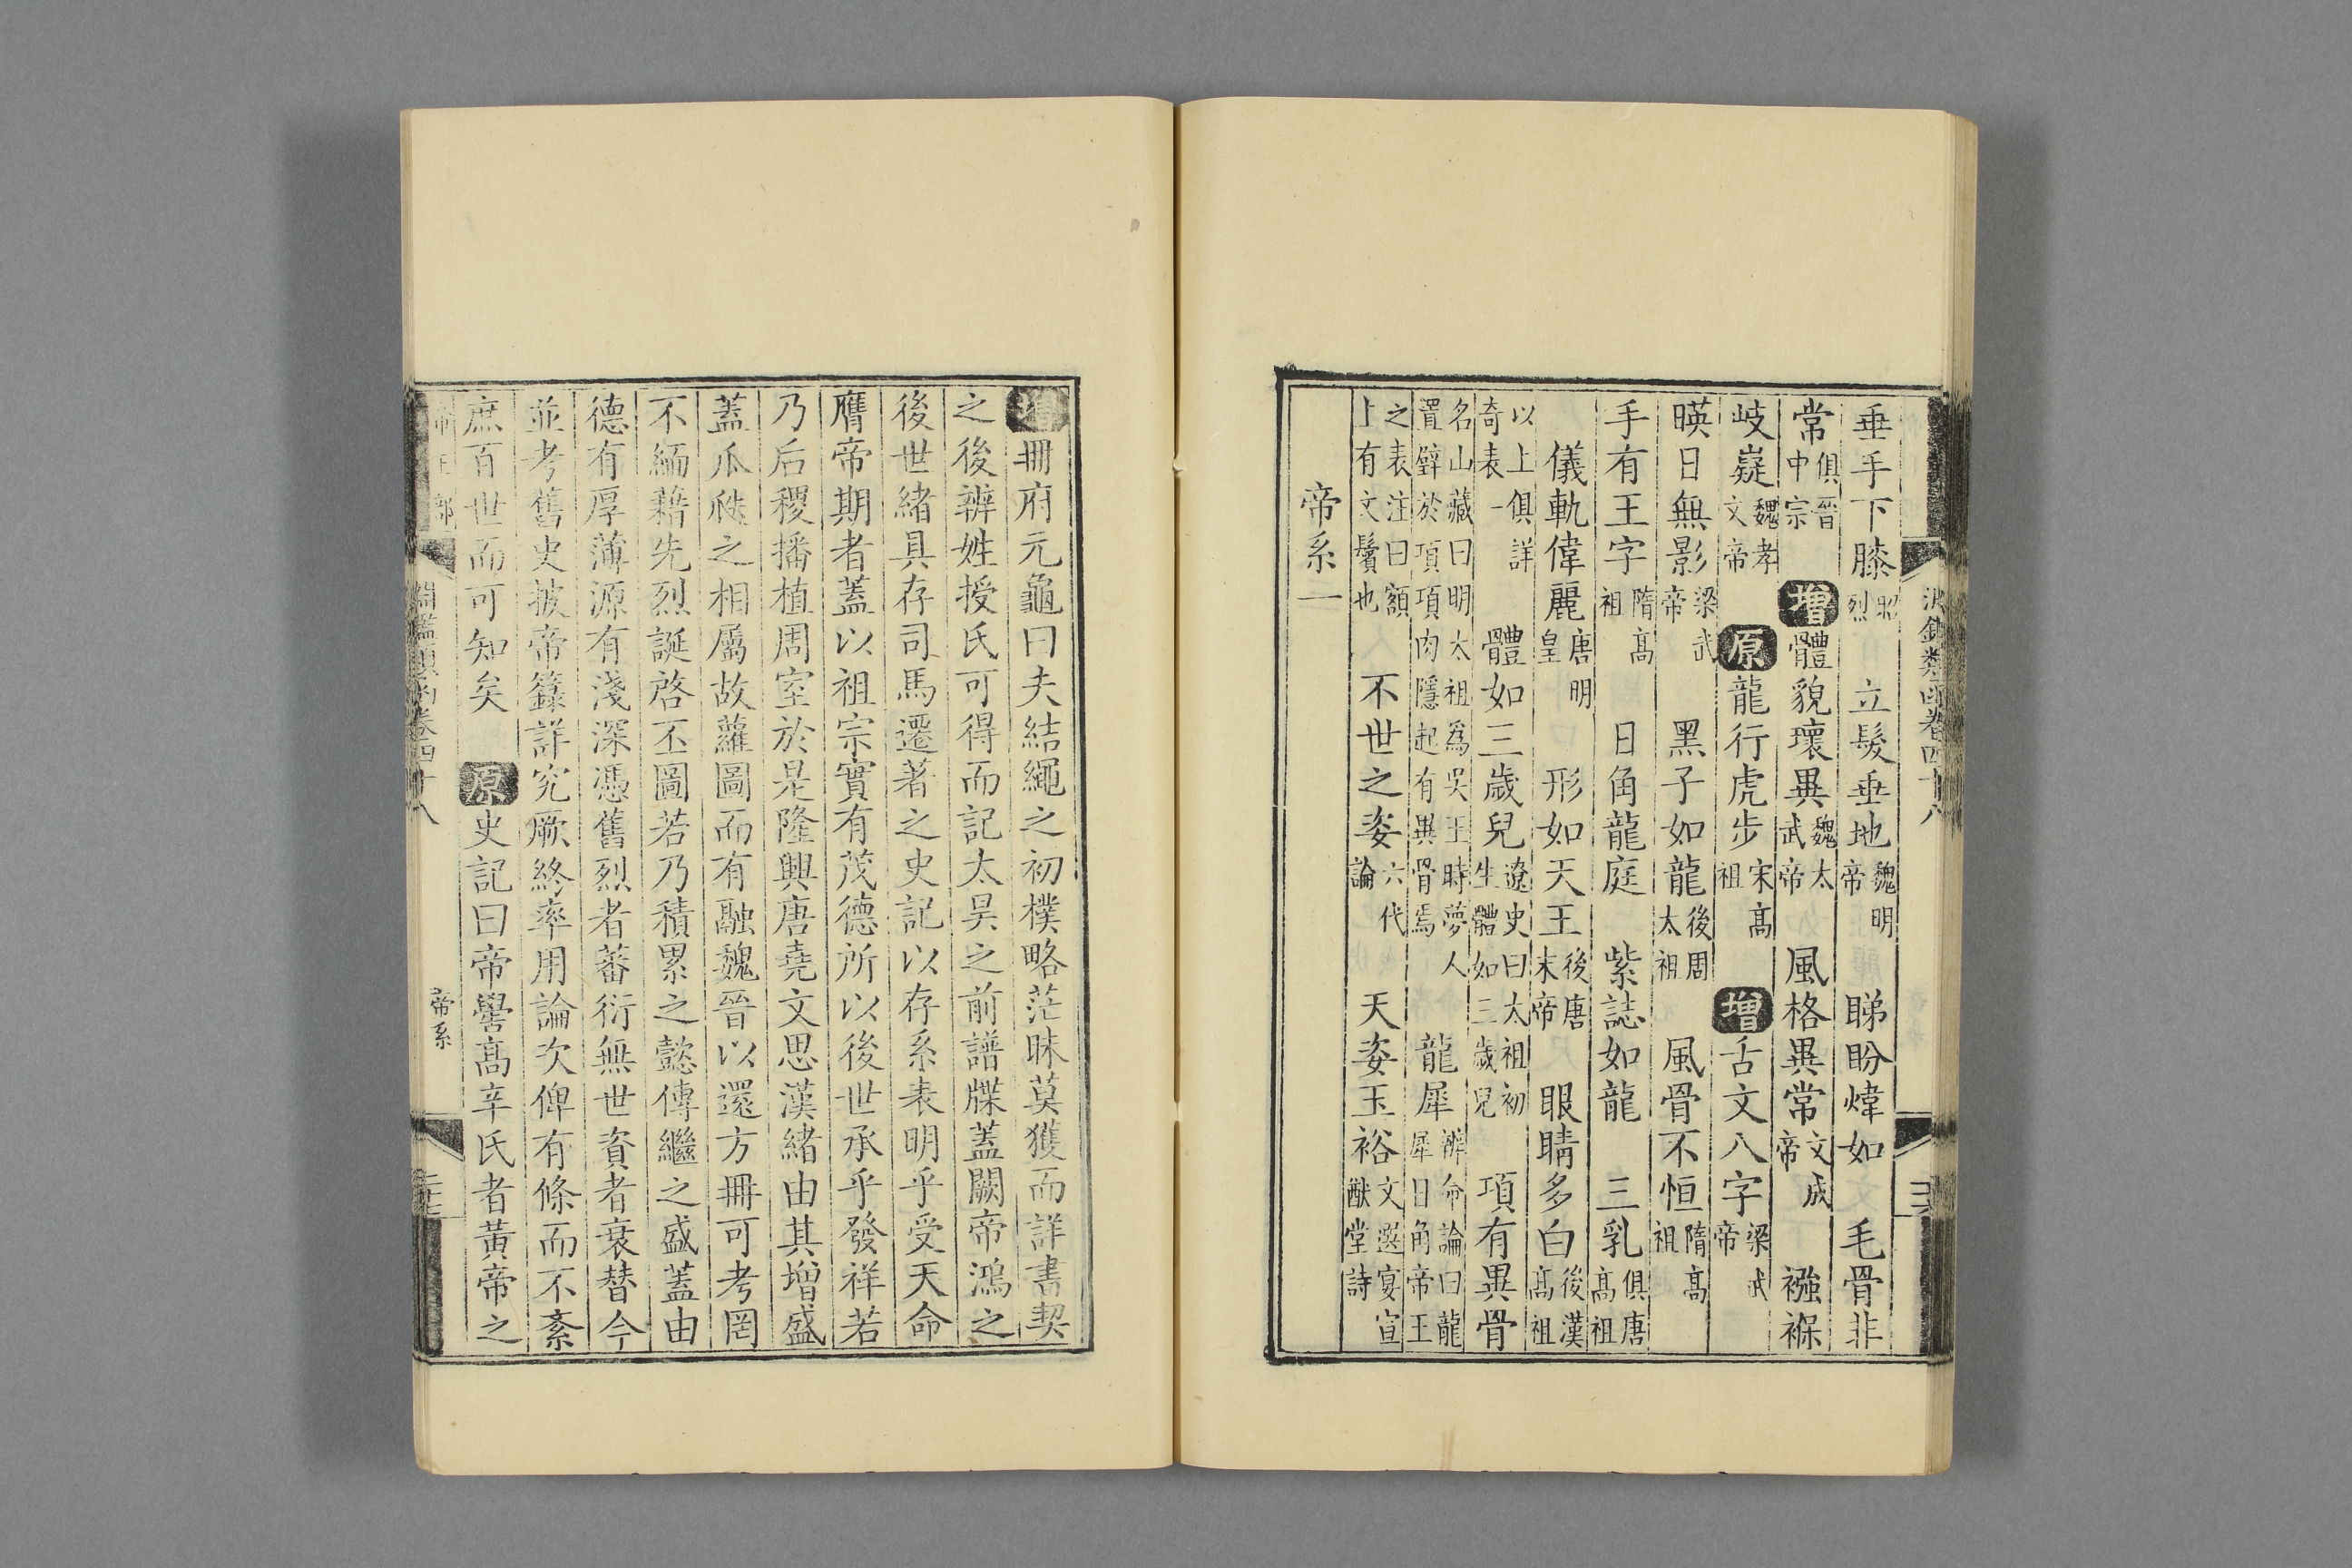 垂手下膝昭烈 立髮垂地魏明帝 睇盼煒如 毛骨非
常俱晉中宗 增體貌瓌異魏太武帝 風格異常文成帝 襁褓
岐嶷魏孝文帝 原龍行虎步宋髙祖 增舌文八字梁武帝
暎日無影梁武帝 黑子如龍後周太祖 風骨不恒隋髙祖
手有王字隋髙祖 日角龍庭 紫誌如龍 三乳俱唐髙祖
儀軌偉麗唐明皇 形如天王後唐末帝 眼睛多白後漢髙祖
以上俱詳奇表一 體如三歲兒遼史曰太祖初生體如三歲兒 項有異骨
名山藏曰明太祖爲吳王時夢人置辟於項項肉隱起有異骨焉 龍犀辨命論曰龍犀日角帝王
之表注曰額上有文鬢也 不世之姿六代論 天姿玉裕文選宴宣猷堂詩
帝系一
增冊府元龜曰夫結繩之初樸略茫昧莫獲而詳書契
之後辨姓授氏可得而記太昊之前譜牒蓋闕帝鴻之
後世緒具存司馬遷著之史記以存系表明乎受天命
膺帝期者蓋以祖宗實有茂德所以後世承乎發祥若
乃后稷播植周室於是隆興唐堯文思漢緒由其增盛
蓋瓜瓞之相屬故蘿圖而有融魏晉以還方冊可考罔
不緬藉先烈誕啓丕圖若乃積累之懿傳繼之盛蓋由
德有厚薄源有淺深憑舊烈者蕃衍無世資者衰替今
並考舊史披帝籙詳究厥終率用論次俾有條而不紊
庶百世而可知矣 原史記曰帝嚳髙辛氏者黃帝之
帝系